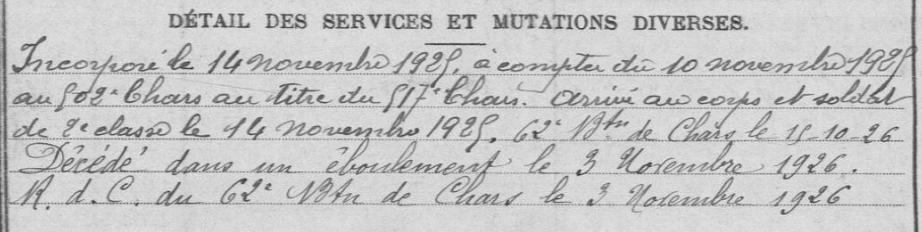 DÉTAIL DES SERVICES ET MUTATIONS DIVERSES.
Incorporé le 14 novembre 1925, à compter du 10 novembre 1925
au 502e Chars au titre du 517e Chars. Arrivé au corps et soldat
de 2e classe le 14 novembre 1925. 62e Btn de Chars le 15-10-26
Décédé dans un éboulement le 3 Novembre 1926.
R. d. C. du 62e Btn de Chars le 3 Novembre 1926